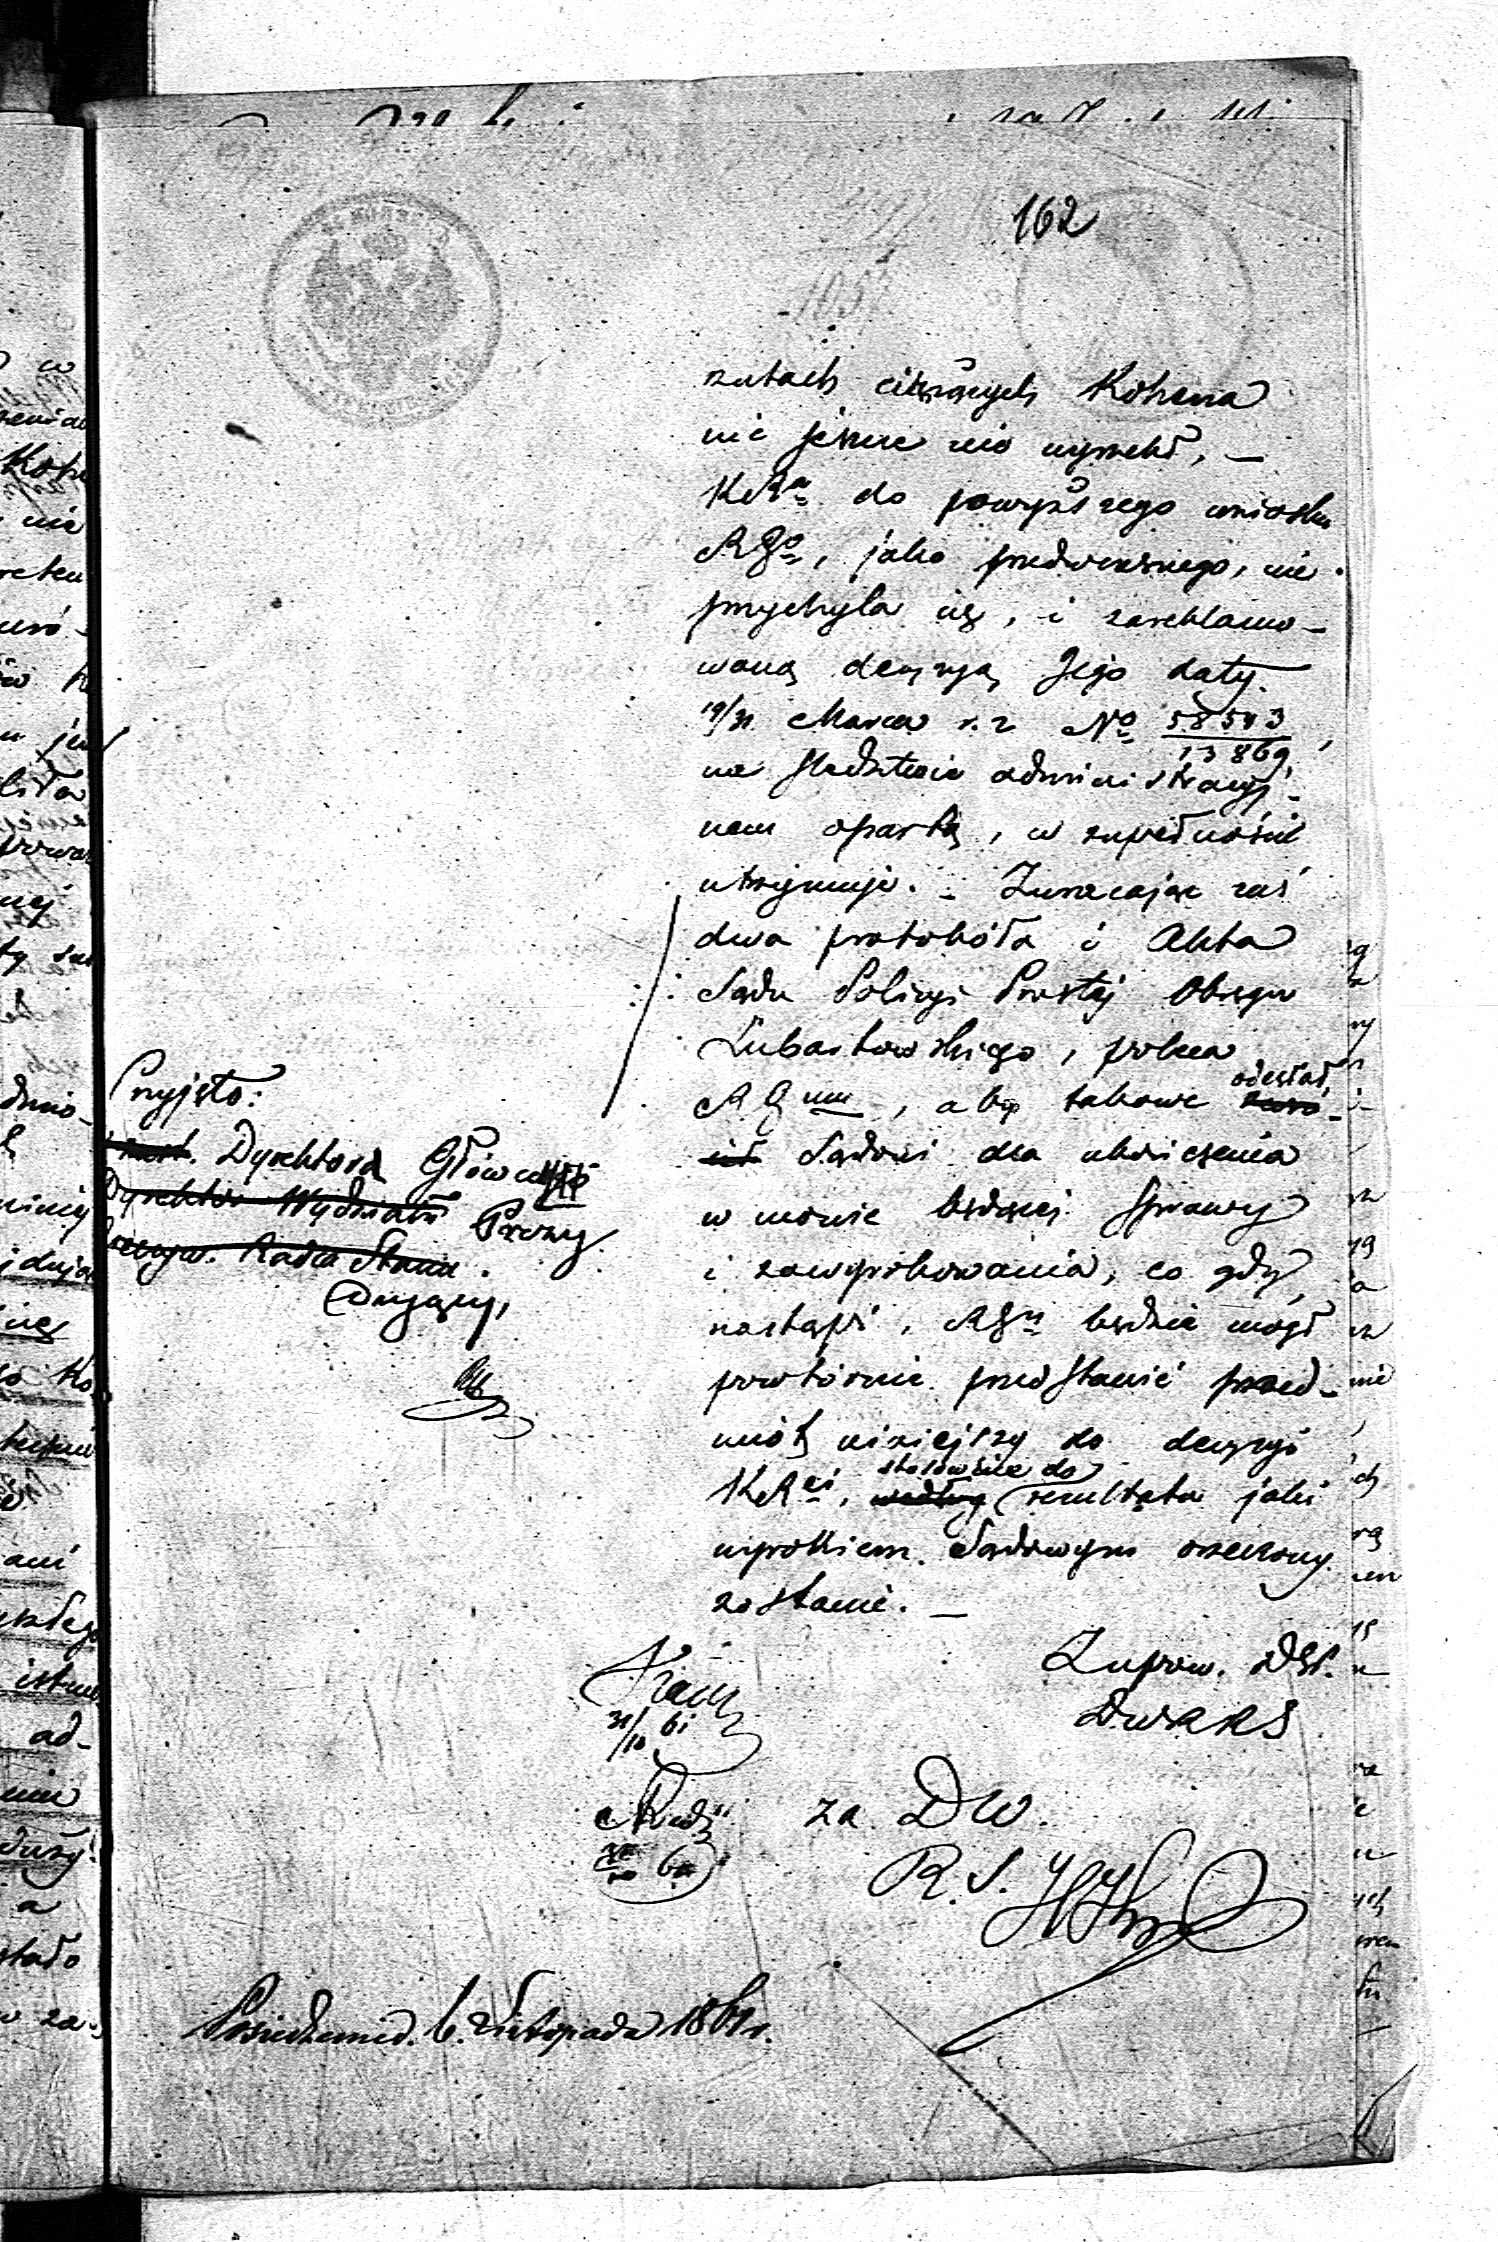 162
1057
rzutach ciążących Kohena
nic jeszcze nie wyrzekł, —
KRa do powyższego wniosku
RGo, jako przedwczesnego, nie
przychyla się, i zareklamo-
waną decyzyą Jego daty
19/31 Marca r. z No 58503/13869,
na śledztwie administracyj-
nem opartą, w zupełności
utrzymuje. - Zwracając zaś
dwa protokóła i Akta
Sądu Policyi Prostej Okręgu
Lubartowskiego, poleca
RGmu, aby takowe odesłał
Sądowi dla ukończenia
w mowie będącej Sprawy
i zawyrokowania, co gdy
nastąpi, RGn będzie mógł
powtórnie przedstawić przed-
miot niniejszy do decyzyi
KRei, według stosownie do rezultatu jaki
wyrokiem Sądowym orzeczony
zostanie. —
Przyjęto:
Dyrektora Główne
Dyrektor Wydziału Prezy
Rzeczyw. Radca Stanu.
dujący,
31/10 61
Zupow. DGł.
DWRRS
za DW.
R. S.
Posiedzenie d. 6. Listopada 1861 r.